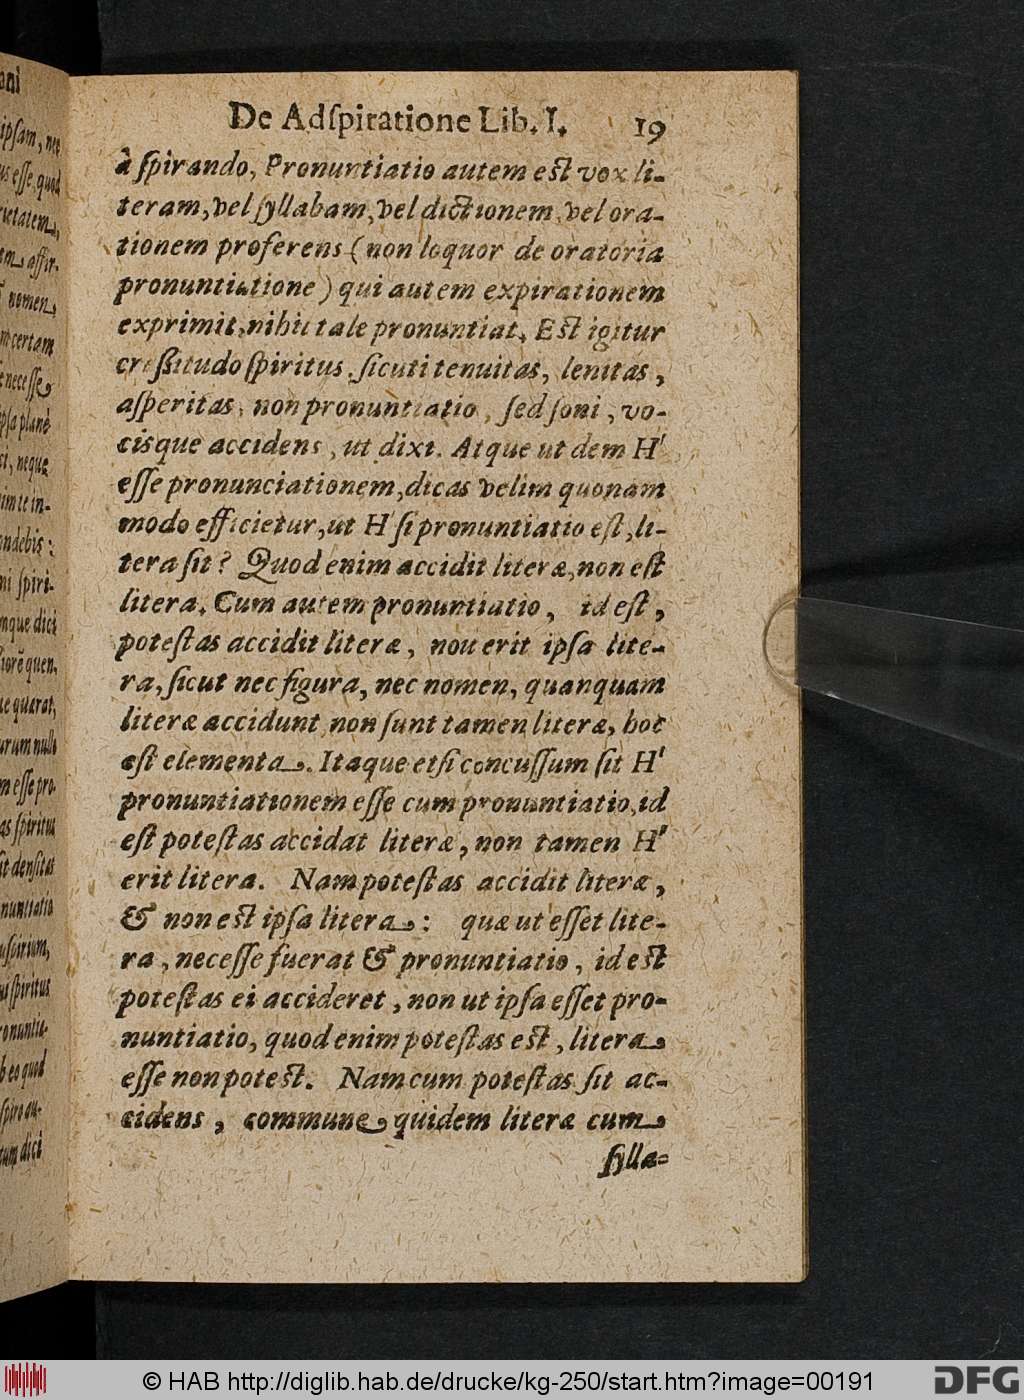 De Adſpiratione Lib. I. 19
à ſpirando, Pronuntiatio autem est vox li-
teram, vel ſyllabam, vel dictionem, vel ora-
tionem proferens (non loquor de oratoria
pronuntiatione) qui autem expirationem
exprimit, nihil tale pronuntiat. Est igitur
craſsitudo ſpiritus, ſicuti tenuitas, lenitas,
aſperitas, non pronuntiatio, ſed ſoni, vo-
cisque accidens, ut dixi. Atque ut dem H'
eſſe pronunciationem, dicas velim quonam
modo efficietur, ut H ſi pronuntiatio eſt, li-
tera ſit? Quod enim accidit literæ, non eſt
litera. Cum autem pronuntiatio, id eſt,
poteſtas accidit literæ, non erit ipſa lite-
ra, ſicut nec figura, nec nomen, quanquam
literæ accidunt, non ſunt tamen literæ, hoc
eſt elementa. Itaque etſi concuſſum ſit H'
pronuntiationem eſſe cum pronuntiatio, id
eſt poteſtas accidat literæ, non tamen H'
erit litera. Nam poteſtas accidit literæ,
& non est ipſa litera: quæ ut eſſet lite-
ra, neceſſe fuerat & pronuntiatio, id est
poteſtas ei accideret, non ut ipſa eſſet pro-
nuntiatio, quod enim poteſtas est, litera
eſſe non potest. Nam cum poteſtas ſit ac-
cidens, commune quidem literæ cum
ſylla-
oni
ipſam, nec
us eſſe, quod
rietatem,
m affir-
nomen,
m certam
neceſſe
ipſa planè
ct, neque
im te in-
ndebis:
ni ſpiri-
mque dici
ſiorē quen-
ue quærat,
rum nullo
m eſſe pro-
as ſpiritus
ſit denſitas
nuntiatio
uſpirium,
ui ſpiritus
ronuntia-
b eo quod
ſpiro au-
tum dici
© HAB http://diglib.hab.de/drucke/kg-250/start.htm?image=00191
DFG